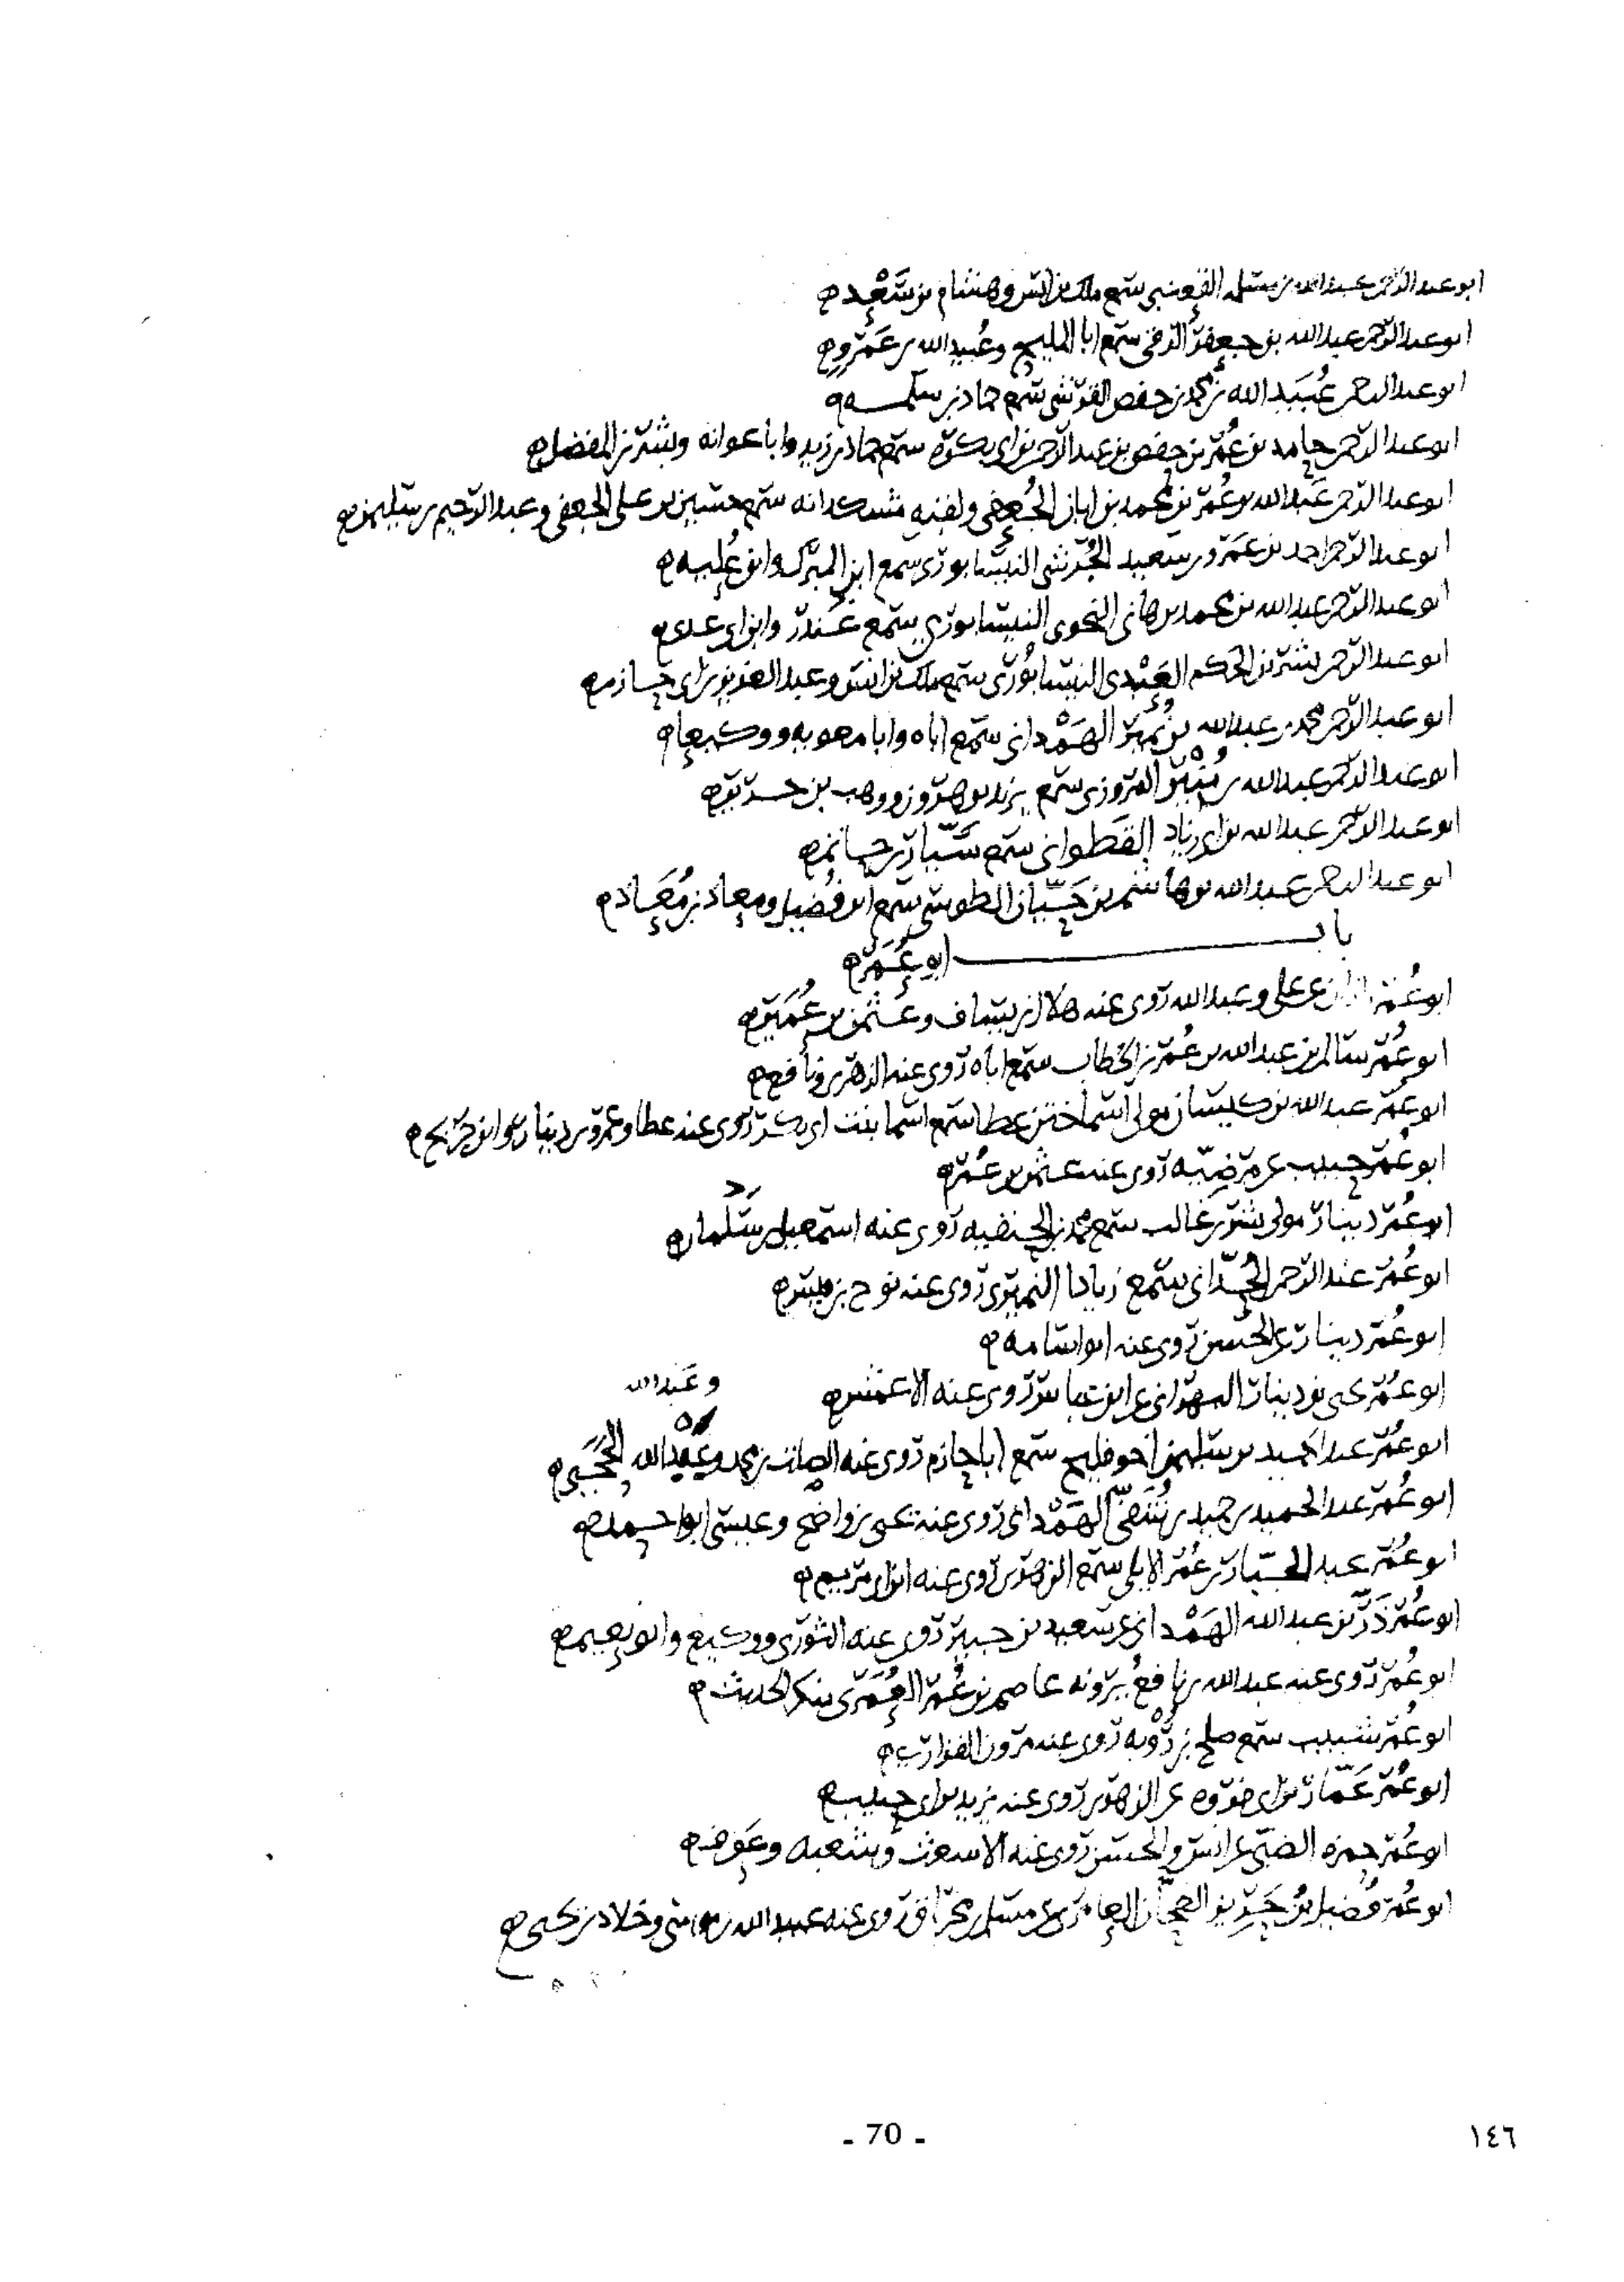 ابو عبد الرحمن عبد الله بن مسلمه القعنبي سمع ملك بن انس وهشام بن سَعْد
ابو عبد الرحمن عبد الله بن جعفر الرقي سمع ابا المليح وعُبيد الله بن عَمرو
ابو عبد الرحمن عُبَيد الله بن محمد بن حفص القرشي سمع حماد بن سلمه
ابو عبد الرحمن حامد بن عُمَر بن حفص بن عبد الرحمن بن ابي بكره سمع حماد بن زيد وابا عوانه وبشر بن المفضل
ابو عبد الرحمن عَبد الله بن عُمَر بن محمد بن ابان الجُعفي ولقبه مشكدانه سمع حسين بن علي الجعفي وعبد الرحيم بن سليمن
ابو عبد الرحمن احمد بن عَمرو بن سعيد الحُرشي النيسابوري سمع ابن المبرك وابن عُليه
ابو عبد الرحمن عبد الله بن محمد بن هانئ النحوي النيسابوري سمع غُندر وابن ابي عدي
ابو عبد الرحمن بشر بن الحكم العَبْدي النيسابُوري سمع ملك بن انس وعبد العزيز بن ابي حازم
ابو عبد الرحمن محمد بن عبد الله بن نُمَير الهَمْداني سمع اباه وابا معويه ووكيعا
ابو عبد الرحمن عبد الله بن مُنِير المروزي سمع يزيد بن هرون ووهب بن جرير
ابو عبد الرحمن عبد الله بن ابي زياد القَطواني سمع سَيّار بن حاتم
ابو عبد الرحمن عبد الله بن هاشم بن حَيّان الطوسي سمع ابن فُضيل ومعاذ بن مُعَاذ
باب ابو عُمَر
ابو عُمَر زاذان عن علي وعبد الله روى عنه هلال بن يساف وعثمن بن عُمَير
ابو عُمَر سالم بن عبد الله بن عُمَر بن الخطاب سمع اباه روى عنه الزهري ونافع
ابو عُمَر عبد الله بن كيسان مولى اسما ختن عطا سمع اسما بنت ابي بكر روى عنه عطا وعمرو بن دينار وابن جُرَيج
ابو عُمَر حبيب عن مر ضِبّه روى عنه عثمن بن عُمَر
ابو عُمَر دينار مولى بشر بن غالب سمع محمد بن الحنفيه روى عنه اسمعيل بن سَلْمان
ابو عُمَر عبد الرحمن الحُدّاني سمع زيادا النميري روى عنه نوح بن قيس
ابو عُمَر دينار عن الحسن روى عنه ابو اسامه
ابو عُمَر يحيى بن دينار البهراني عن ابن عباس روى عنه الاعمش
وعَبد الله
ابو عُمَر عبد الحميد بن سليمن اخو فليح سمع ابا حازم روى عنه الصلت بن محمد وعبد الله الحَجَبي
ابو عُمَر عبد الحميد بن حميد بن شُفَيّ الهَمْداني روى عنه يحيى بن واضح وعيسى ابو احمد
ابو عُمَر عبد الجبار بن عُمَر الايلي سمع الزهري روى عنه ابن ابي مريم
ابو عُمَر ذَرّ بن عبد الله الهَمْداني عن سعيد بن جبير روى عنه الثوري ووكيع وابو نعيم
ابو عُمَر روى عنه عبد الله بن نافع يُرونه عاصم بن عُمَر العُمَري منكر الحديث
ابو عُمَر شبيب سمع صلح بن رُوْبه روى عنه مرون الفزاري
ابو عُمَر عَمّار بن ابي فروه عن الزهري روى عنه يزيد بن ابي حبيب
ابو عُمَر حمزه الضبي عن انس والحسن روى عنه الاشعث وشعبه وعَوف
ابو عُمَر فُضيل بن جَرير بن العجلان العامري عن مسلم بن مخراق روى عنه عبيد الله بن موسى وخلاد بن يحيى
- 70 -
١٤٦